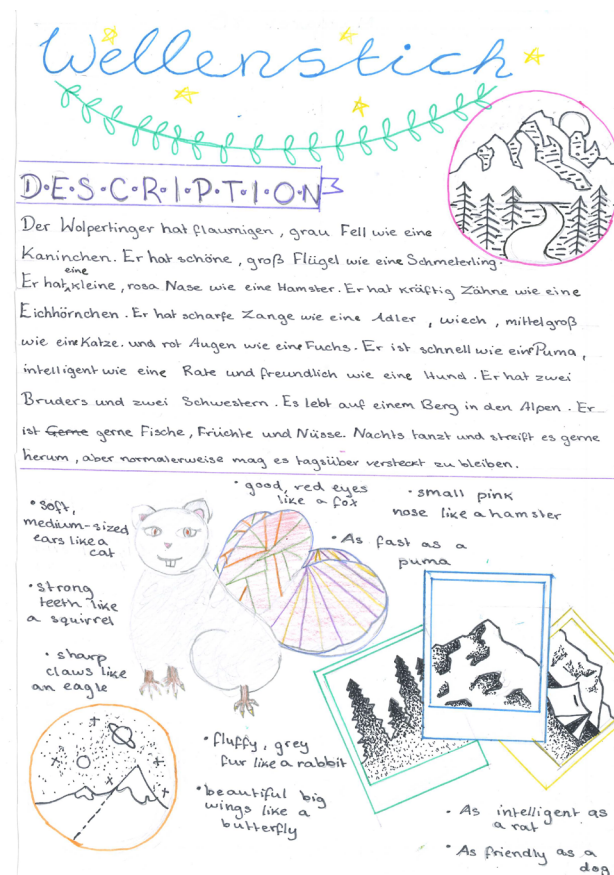 Wellenstich
D.E.S.C.R.I.P.T.I.O.N
Der Wolpertinger hat flaumigen, grau Fell wie eine
Kaninchen. Er hat schöne, groß Flügel wie eine Schmeterling.
Er hat eine kleine, rosa Nase wie eine Hamster. Er hat kräftig Zähne wie eine
Eichhörnchen. Er hat scharfe Zange wie eine Adler, wiech, mittelgroß
wie eine Katze. und rot Augen wie eine Fuchs. Er ist schnell wie eine Puma,
intelligent wie eine Rate und freundlich wie eine Hund. Er hat zwei
Bruders und zwei Schwestern. Es lebt auf einem Berg in den Alpen. Er
ist Gerne gerne Fische, Früchte und Nüsse. Nachts tanzt und streift es gerne
herum, aber normalerweise mag es tagsüber versteckt zu bleiben.
• soft,
medium-sized
ears like a
cat
• good, red eyes
like a fox
• small pink
nose like a hamster
• As fast as a
puma
• strong
teeth like
a squirrel
• sharp
claws like
an eagle
• fluffy, grey
fur like a rabbit
• beautiful big
wings like a
butterfly
• As intelligent as
a rat
• As friendly as a
dog